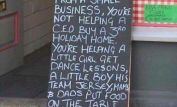 FROM A SMALL
BUSINESS, YOU'RE
NOT HELPING A
CEO BUY A 3RD
HOLIDAY HOME
YOU'RE HELPING A
LITTLE GIRL GET
DANCE LESSONS,
A LITTLE BOY HIS
TEAM JERSEY, MAMS
& DADS PUT FOOD
ON THE TABLE